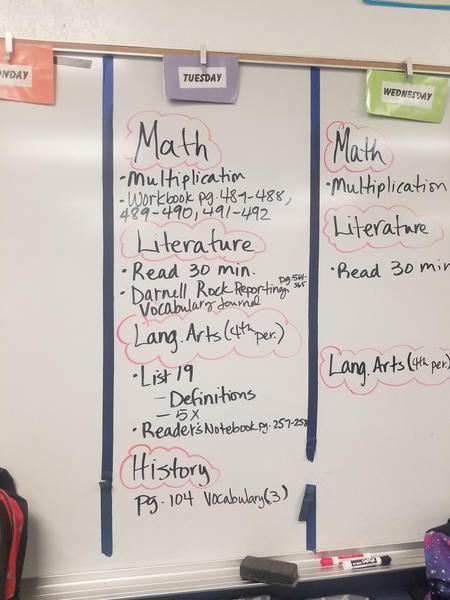 ONDAY
TUESDAY
WEDNESDAY
Math
• Multiplication
- Workbook pg. 487-488,
489-490, 491-492
Literature
• Read 30 min.
• Darnell Rock Reporting pg. 564-
565
Vocabulary Journal
Lang. Arts (4th per.)
• List 19
- Definitions
- 5X
• Reader's Notebook pg. 257-258
History
pg. 104 Vocabulary (3)
Math
• Multiplication
Literature
• Read 30 min
Lang. Arts (4th per.